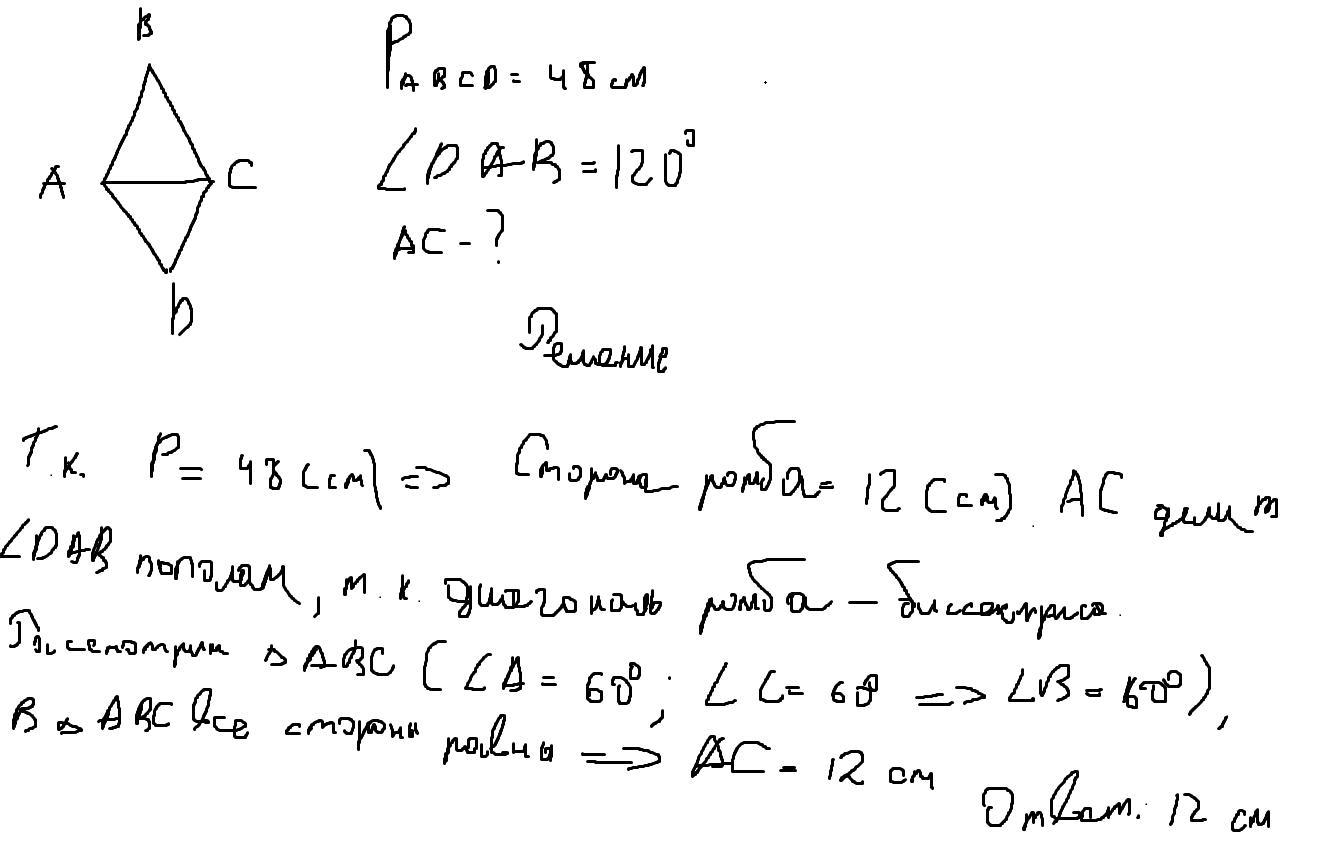 B
P ABCD = 48 см
∠DAB = 120°
A
C
AC - ?
D
Решение
Т.к. P = 48 (см) => Сторона ромба = 12 (см). AC делит
∠DAB пополам, т.к. диагональ ромба – биссектриса.
Рассмотрим △ABC (∠A = 60°; ∠C = 60° => ∠B = 60°),
В △ABC все стороны равны => AC = 12 см
Ответ: 12 см